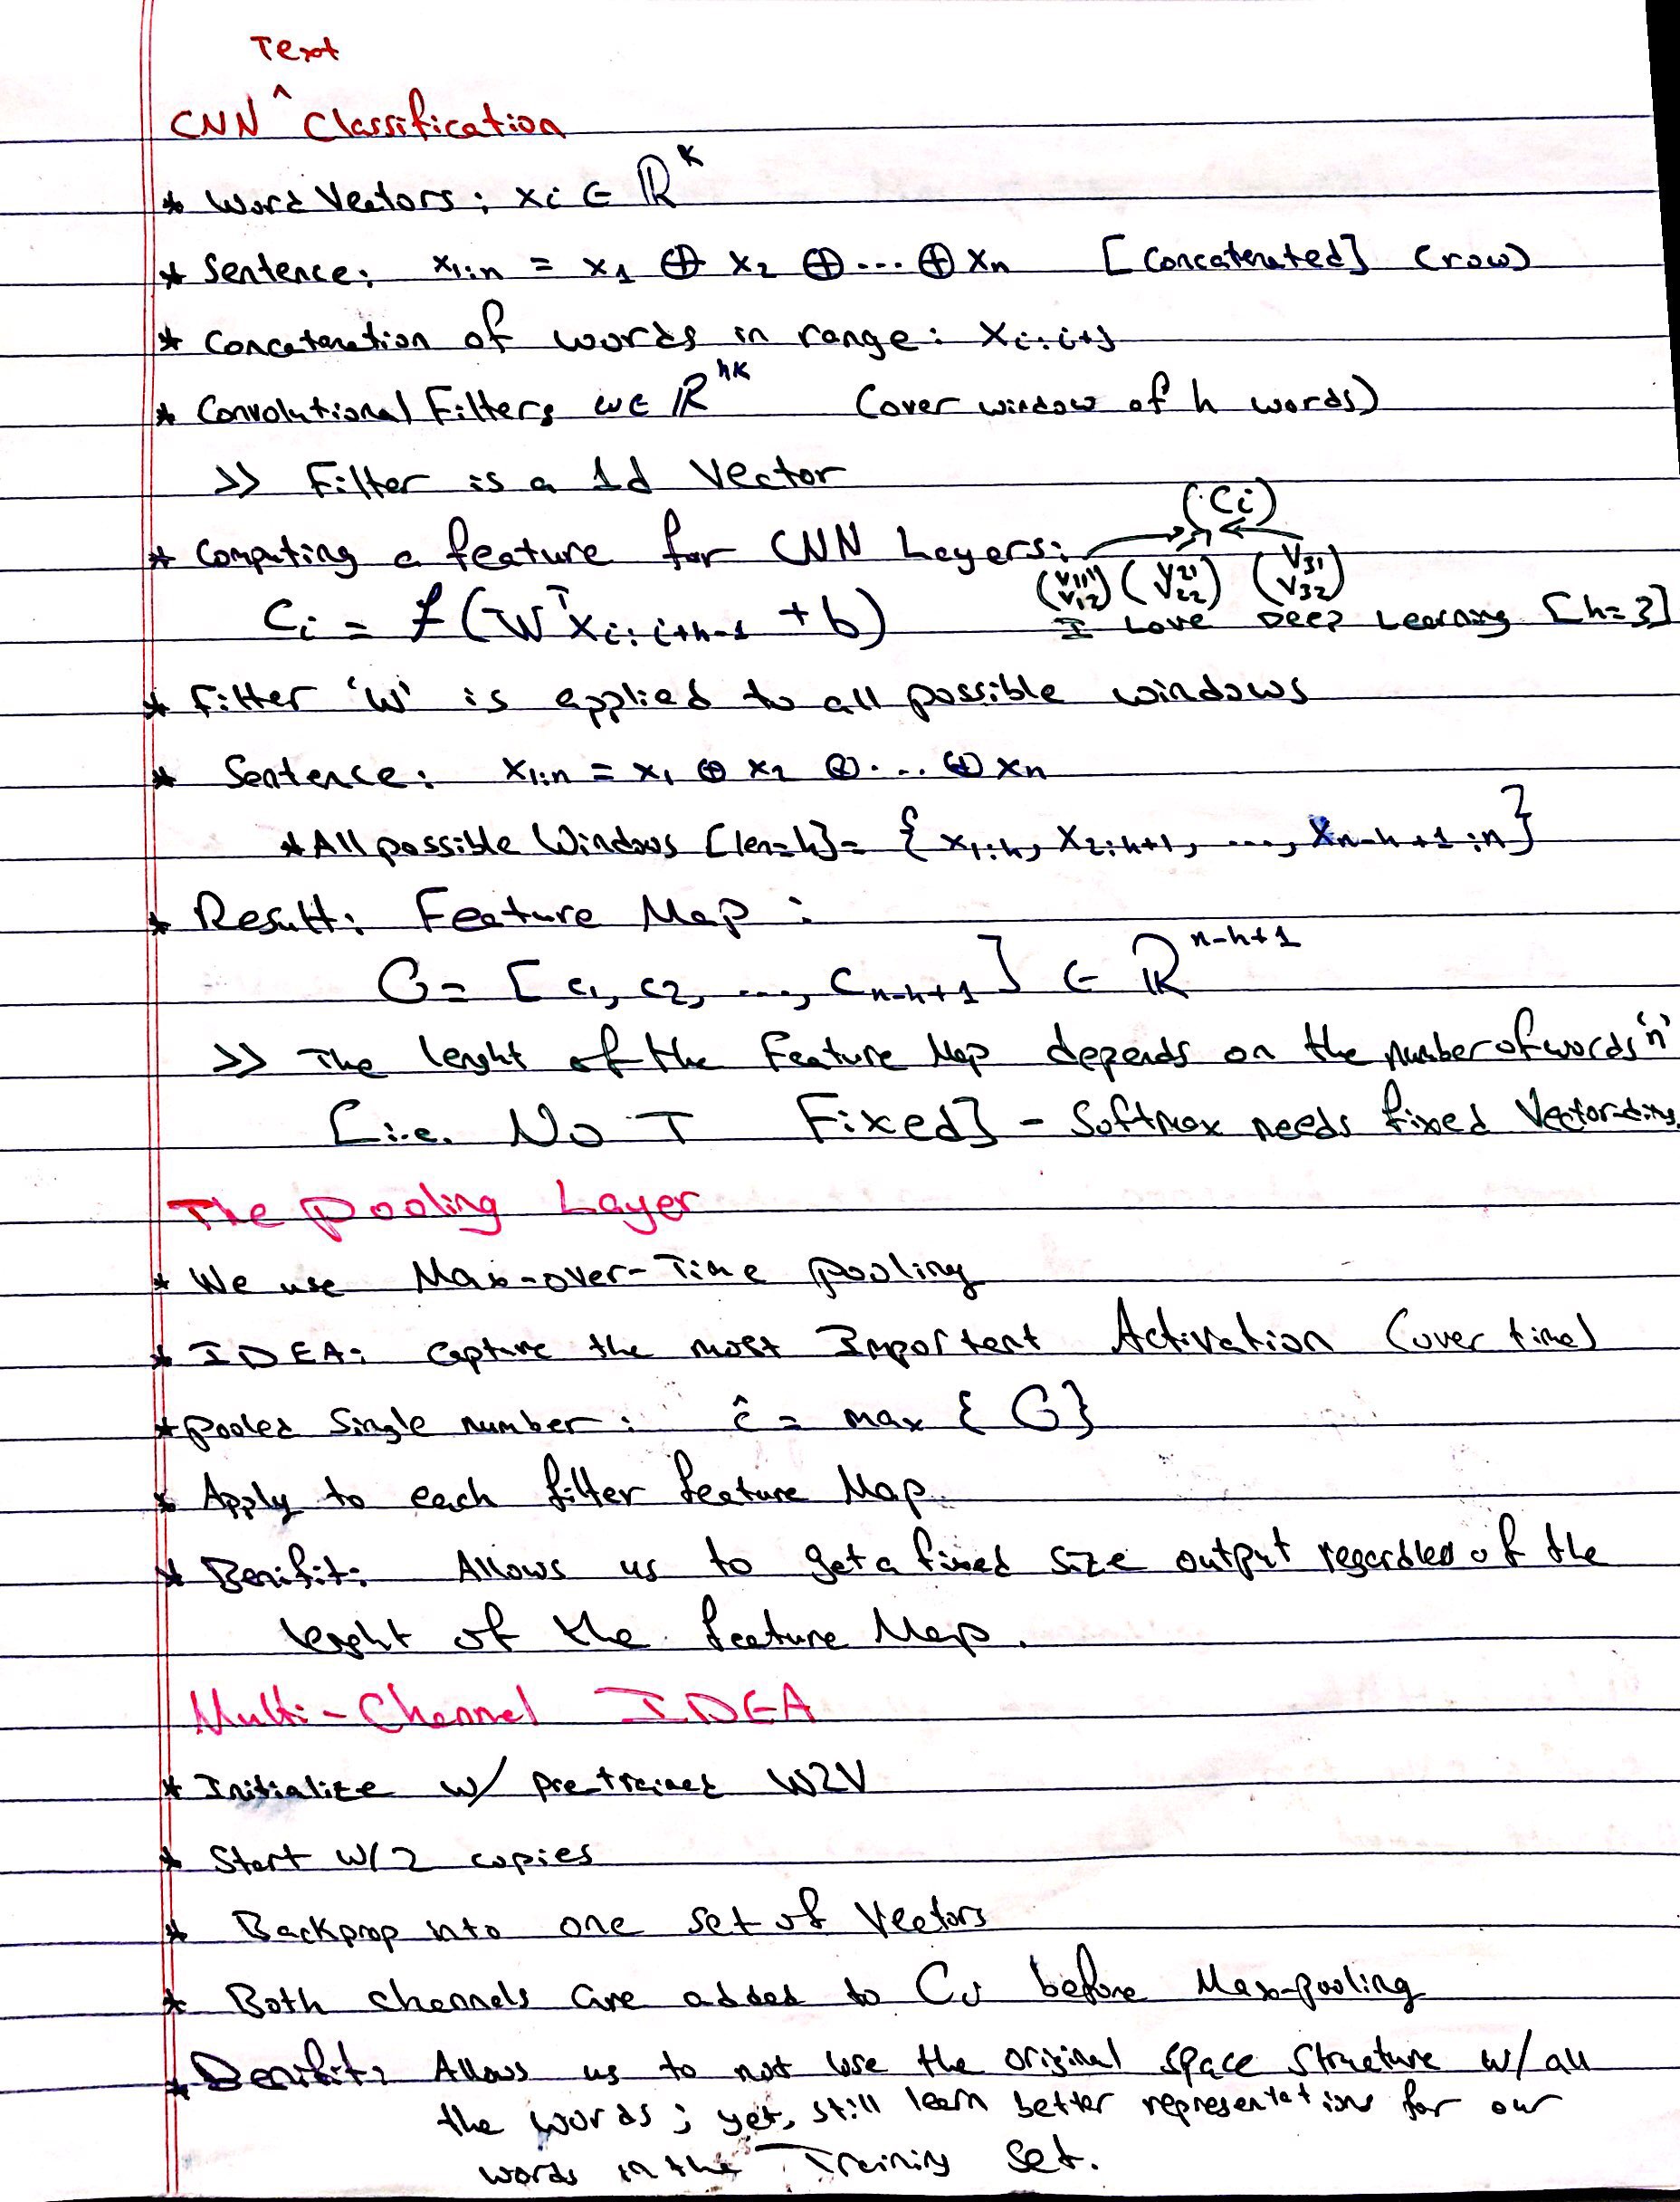 Text
CNN ^ Classification
* Word Vectors: xi ∈ ℝ^k
* Sentence: x1:n = x1 ⊕ x2 ⊕ ... ⊕ xn [Concatenated] (row)
* Concatenation of words in range: Xi:i+j
* Convolutional Filters w ∈ ℝ^hk (over window of h words)
>> Filter is a 1d Vector
(Ci)
* Computing a feature for CNN Layers:
(V11 V12) (V21 V22) (V31 V32)
Ci = f(W^T Xi:i+h-1 + b)
I Love Deep Learning [h=3]
* Filter 'W' is applied to all possible windows
* Sentence: X1:n = x1 ⊕ x2 ⊕ ... ⊕ xn
* All possible Windows [len=h] = { x1:h, X2:h+1, ..., Xn-h+1:n }
* Result: Feature Map:
C = [c1, c2, ..., Cn-h+1] ∈ ℝ^n-h+1
>> The lenght of the Feature Map depends on the number of words 'n'
[i.e. NOT Fixed] - Softmax needs fixed Vector-dims
The Pooling Layer
* We use Max-over-Time pooling
* IDEA: Capture the most Important Activation (over time)
* Pooled Single number: ĉ = max { C }
* Apply to each filter feature Map.
* Benifit: Allows us to get a fixed size output regardles of the
lenght of the feature Map.
Multi-Channel IDEA
* Initialize w/ pre-trained W2V
* Start w/ 2 copies
* Backprop into one set of Vectors
* Both channels are added to Ci before Max-pooling
* Benifit: Allows us to not lose the original space structure w/ all
the words; yet, still learn better representations for our
words in the Training Set.